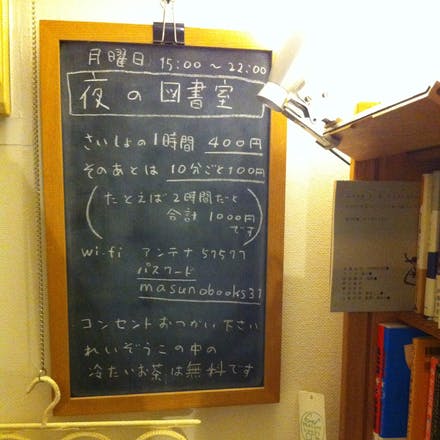 月曜日 15:00 〜 22:00
夜の図書室
さいしょの1時間 400円
そのあとは 10分ごと100円
(たとえば2時間だと
合計 1000円
です)
wi-fi アンテナ 57577
パスワード
masunobooks31
・コンセントおつかい下さい
れいぞうこの中の
冷たいお茶は無料です